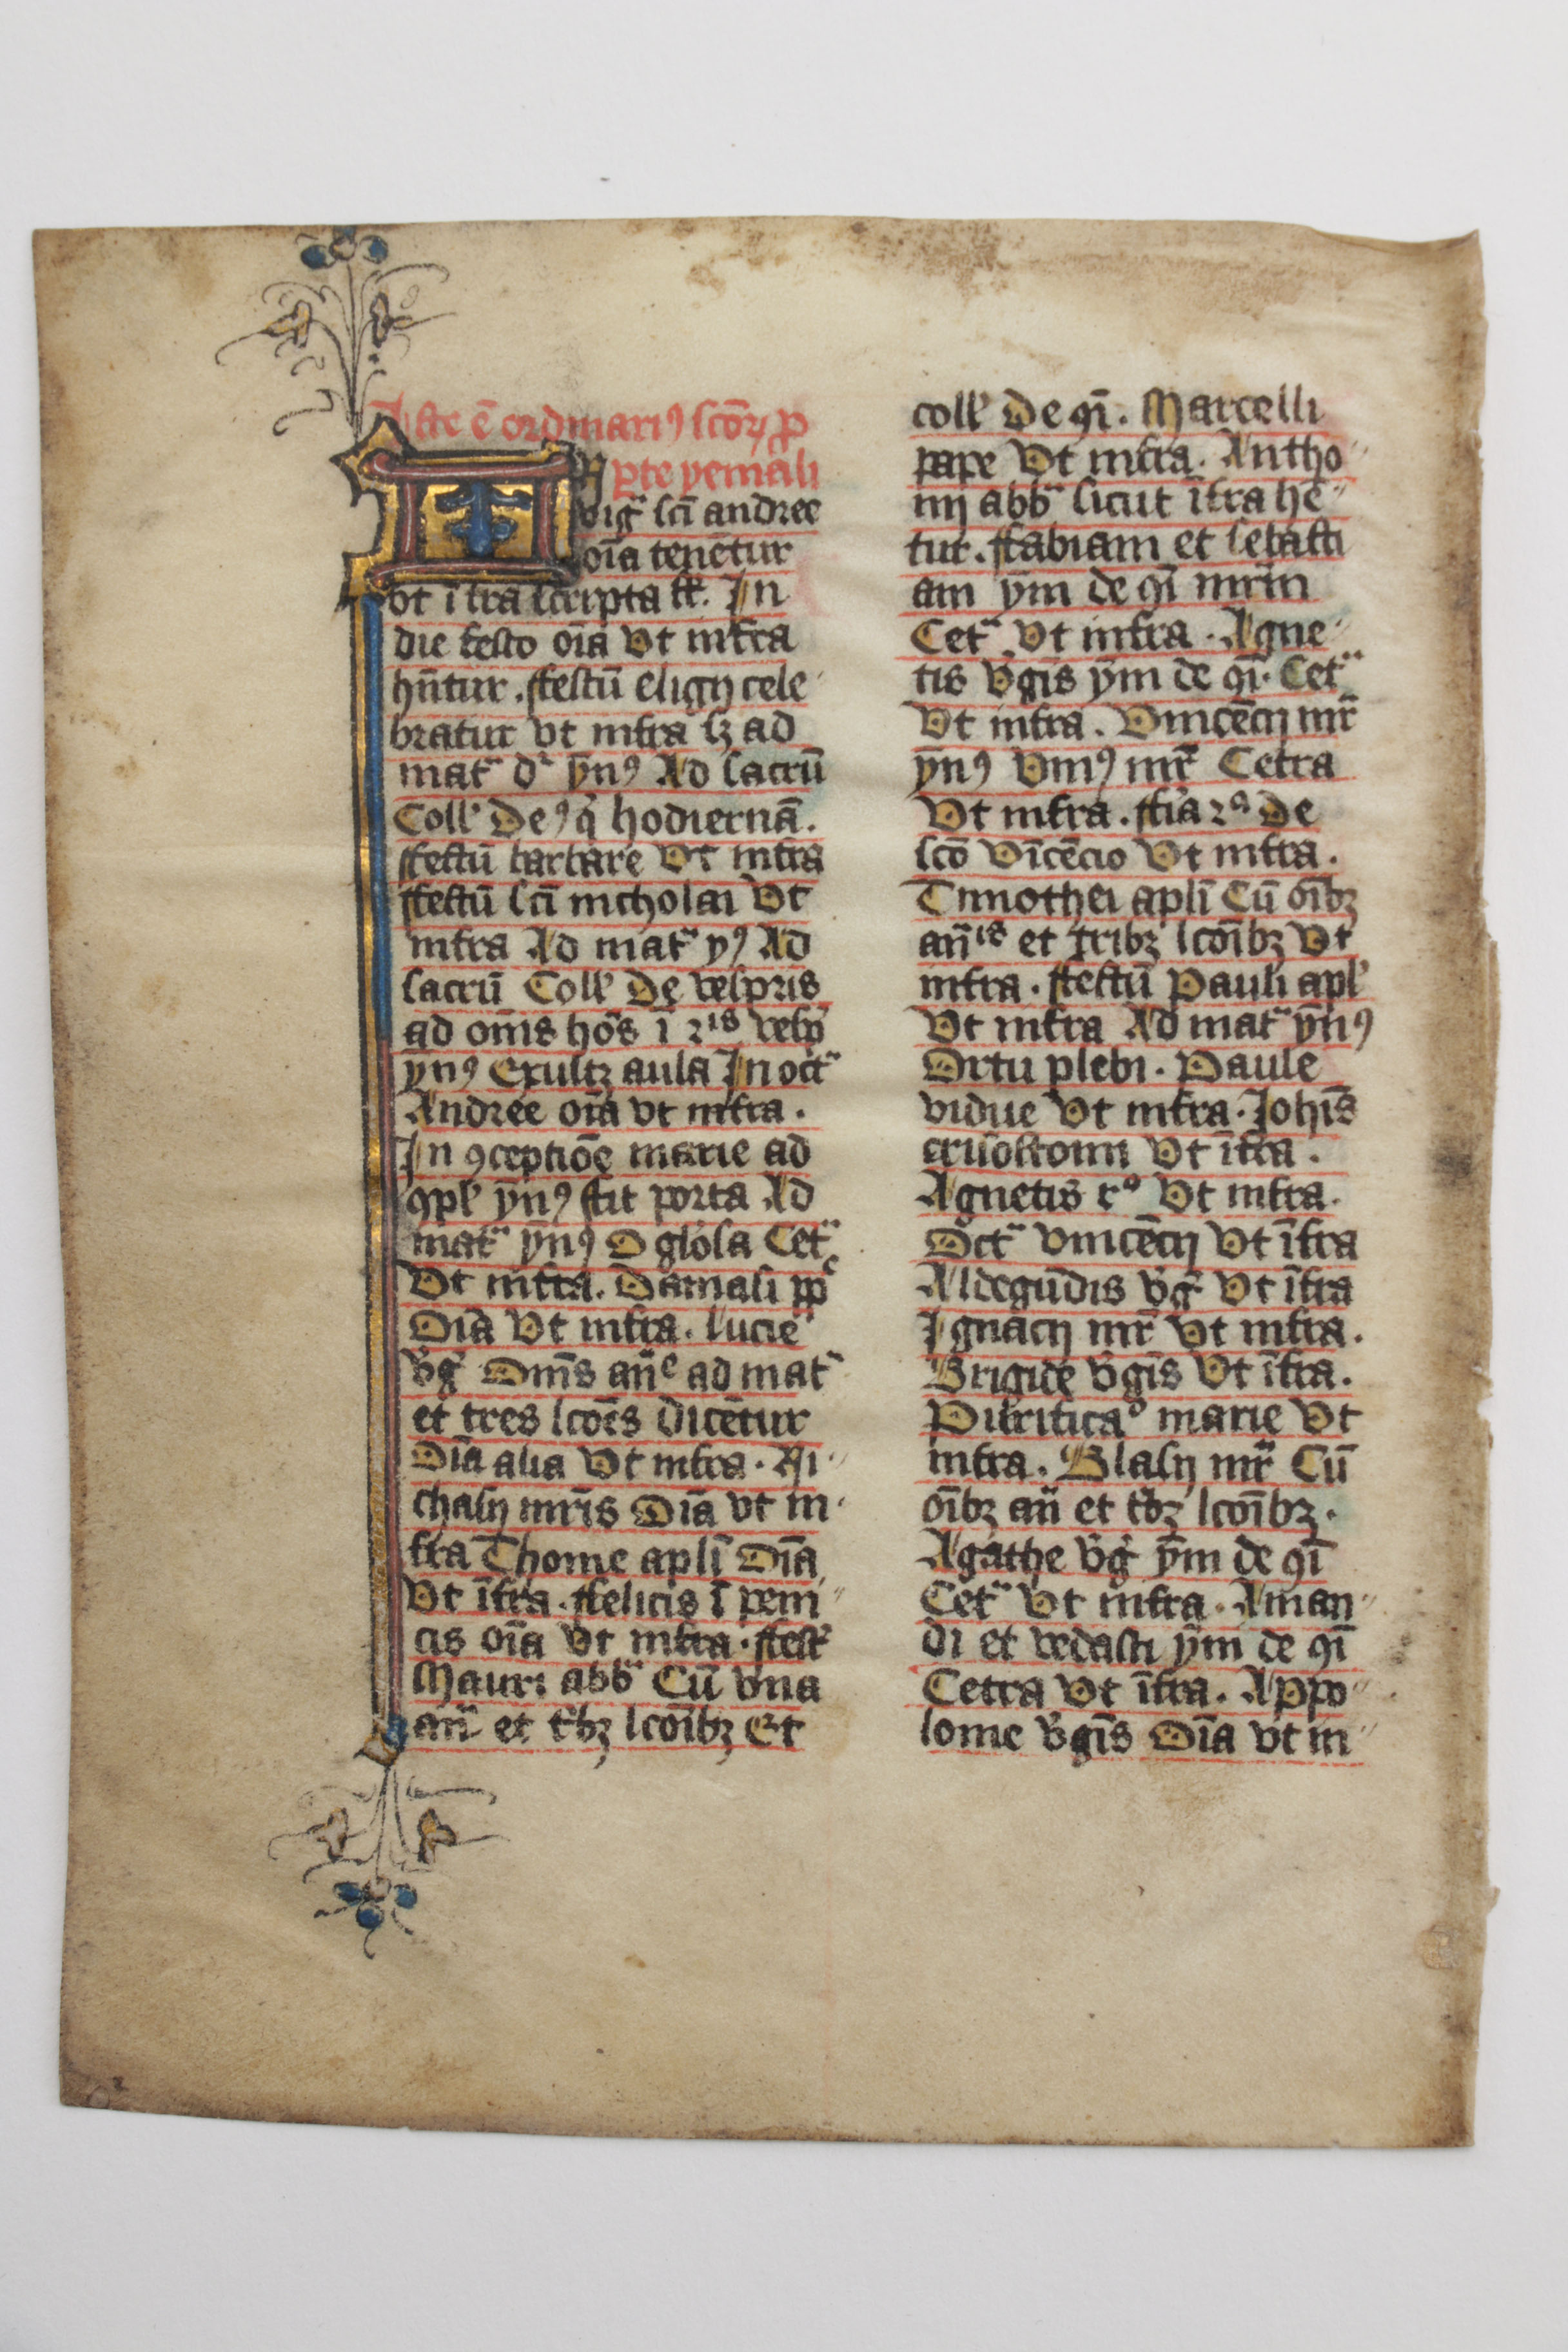 Iste ē ordinariꝰ scōrꝝ p
N ꝑte yemali
vigͣ scī andree
oīa tenētur
vt īfra scripta st̄. In
die festo oīa Vt infra
hn̄tur. ffestū eligij cele
bratur vt infra sꝫ ad
matͣ dʳ ȳnꝰ Ad sacrū
Coll' Deꝰ q̇ hodiernā.
ffestū barbare Vt infra
ffestū scī nicholai Vt
infra Ad matͣ yꝰ Ad
sacrū Coll' De vesp̄ris
ad om̄s hōs ī 2is vesp̄
ynꝰ Exultꝫ aula In octͣ
Andree oīa vt infra.
In ꝯceptiōe marie ad
ꝯpl' ȳnꝰ ffit porta Ad
matͣ ȳnꝰ O glōsa Cetͣ
Vt infra. Damasi pp̄
Oīa Vt infra. Lucie
v̄g̾ Om̄s an̄e ad mat̾
et tres lcōēs dicētur
Oīa alia Vt infra. Ni
chasij mr̄is Oīa vt in
fra Thome aplī Oīa
Vt īfra. ffelicis ī pein
cis oīa Vt infra. ffest'
Mauri abbͣ Cū vna
an̄ et t'bꝫ lcōībꝫ Et
coll' De ꝯī. Marcelli
pape Vt infra. Antho
nij abbͣ sicut īfra he
tur. ffabiam et sebasti
am ȳm de ꝯī mr̄m
Cetͣ Vt infra. Agne
tis v̄gis ȳm de ꝯī. Cetͣ
Vt infra. Vincēcij mr̄
ȳnꝰ Vniꝰ mr̄ Cetra
Vt infra. ffīa 2ª De
scō Vīcēcio Vt infra.
Timothei aplī Cū oībꝫ
an̄is et tribꝫ lcōībꝫ Vt
infra. ffestū Pauli apl'
Vt infra Ad matͣ ȳnꝰ
Ortu plebi. Paule
vidue Vt infra. Iohīs
crīsostomi Vt īfra.
Agnetis 2º Vt infra.
Octͣ vincēcij Vt īfra
Aldegūdis v̄g̾ Vt īfra
Ignacij mr̄ Vt infra.
Brigide v̄gīs Vt īfra.
Purificaº marie Vt
infra. Blasij mr̄ Cū
oībꝫ an̄ et t'bꝫ lcōībꝫ.
Agathe v̄g̾ ȳm de ꝯī
Cetͣ Vt infra. Aman
di et vedasti ȳm de ꝯī
Cetra Vt īfra. Appo
lonie v̄gīs Oīa vt in